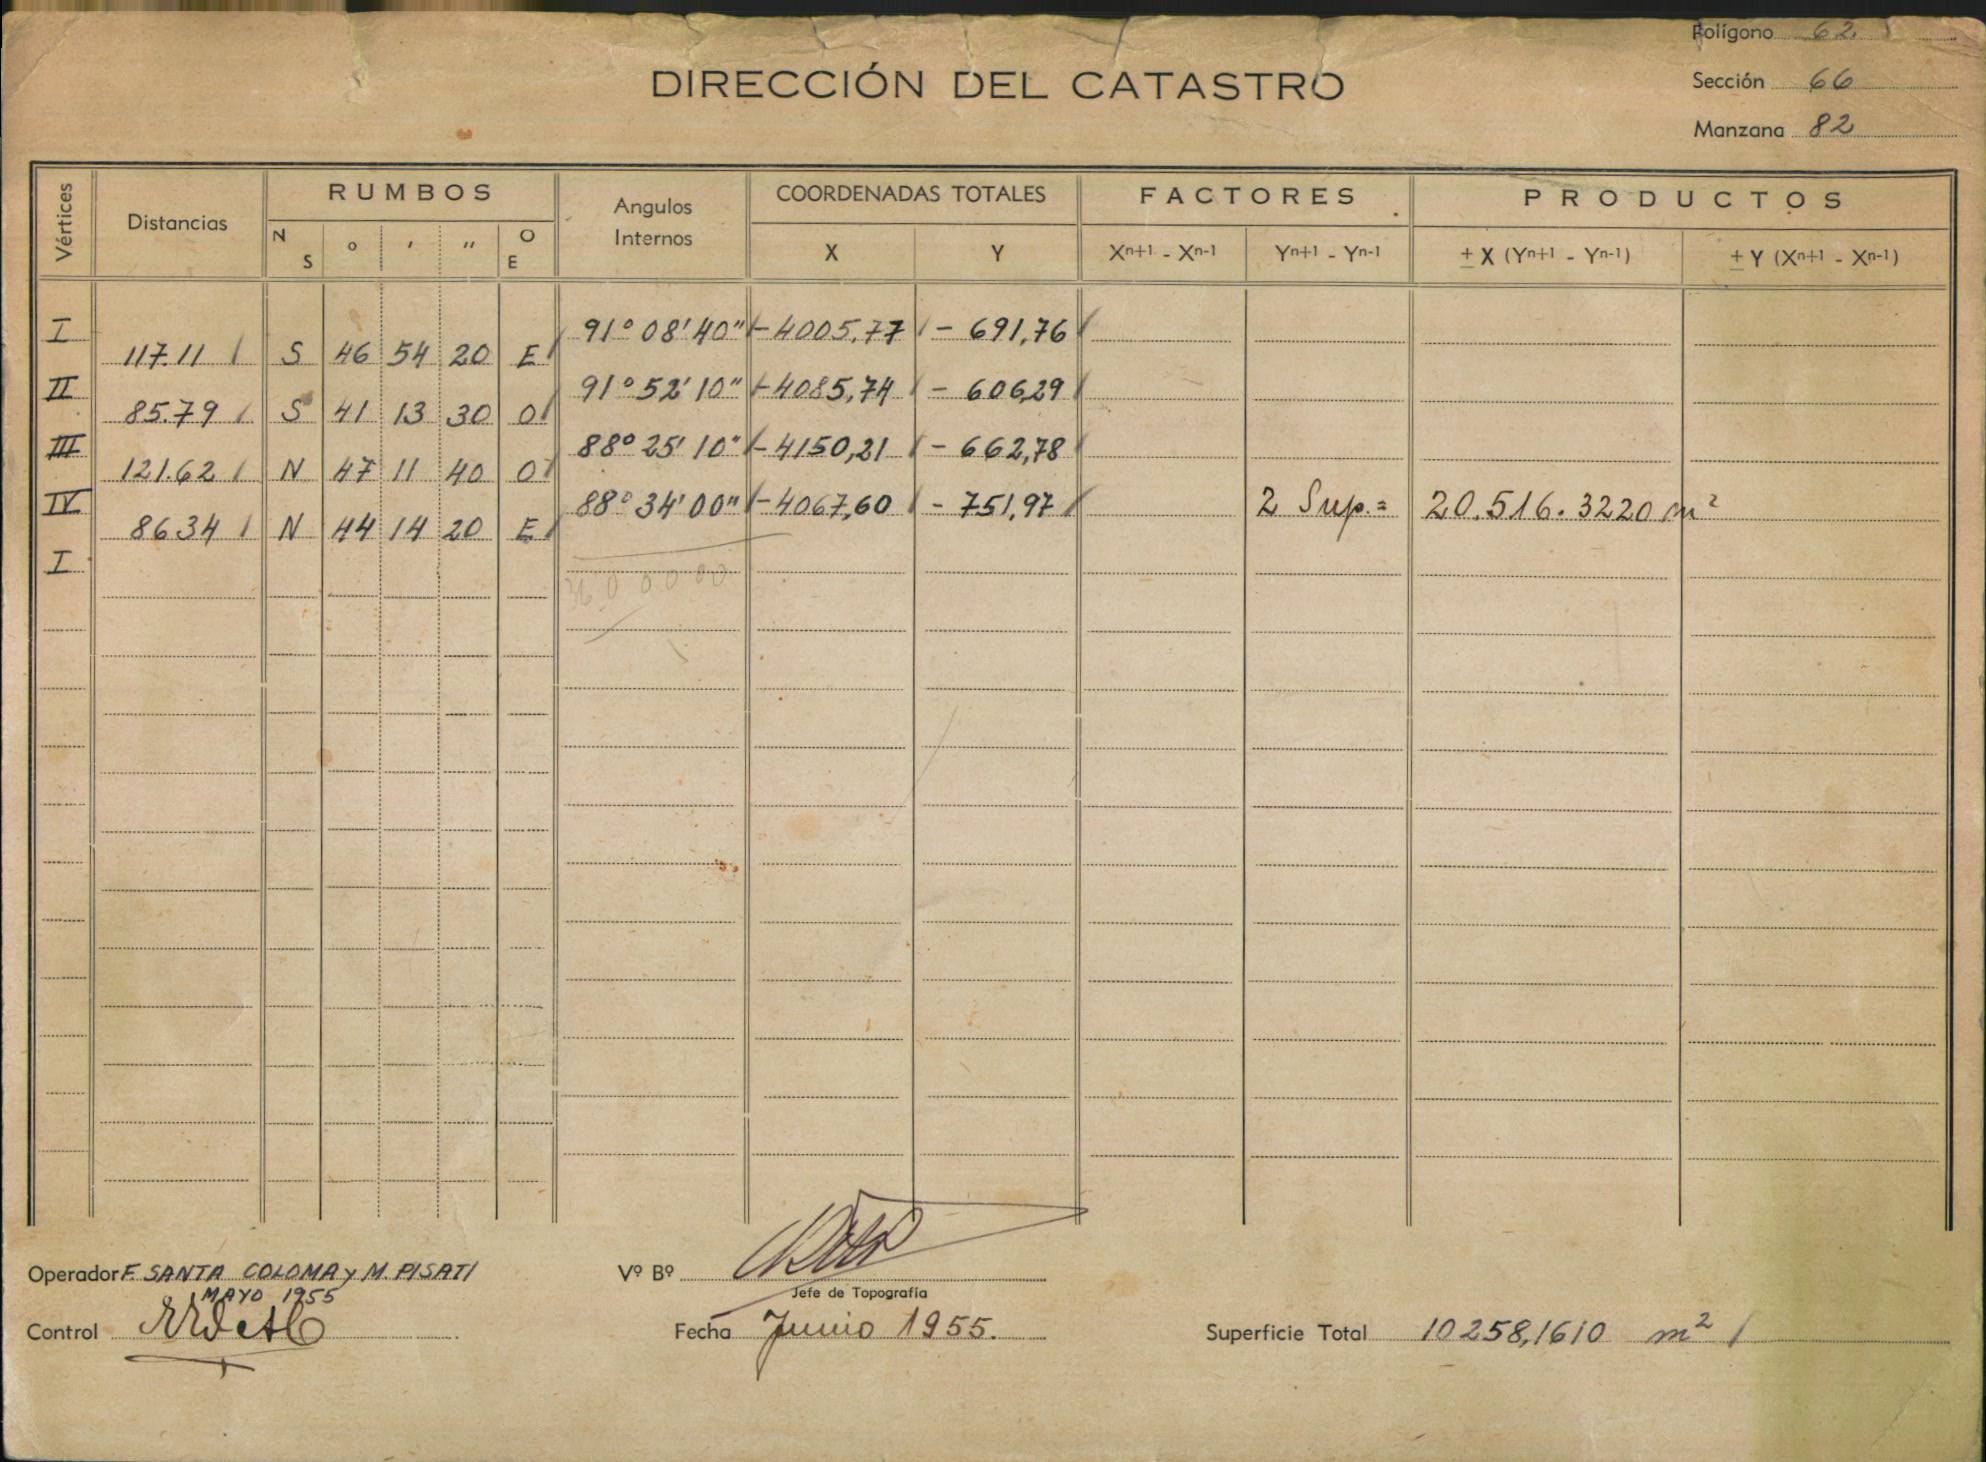 Polígono 62
Sección 66
Manzana 82
DIRECCIÓN DEL CATASTRO
Vértices Distancias RUMBOS Angulos Internos COORDENADAS TOTALES FACTORES PRODUCTOS
N S ° ' " O E X Y Xn+1 - Xn-1 Yn+1 - Yn-1 ± X (Yn+1 - Yn-1) ± Y (Xn+1 - Xn-1)
I 91° 08' 40" - 4005,77 - 691,76
117.11 S 46 54 20 E
II 91° 52' 10" - 4085,74 - 606,29
85.79 S 41 13 30 O
III 88° 25' 10" - 4150,21 - 662,78
121.62 N 47 11 40 O
IV 88° 34' 00" - 4067,60 - 751,97 2 Sup. = 20.516.3220 m²
86.34 N 44 14 20 E
I
360 00 00
Operador F. SANTA COLOMA y M. PISATI
MAYO 1955
Vº Bº
Jefe de Topografía
Control
Fecha Junio 1955.
Superficie Total 10258,1610 m²